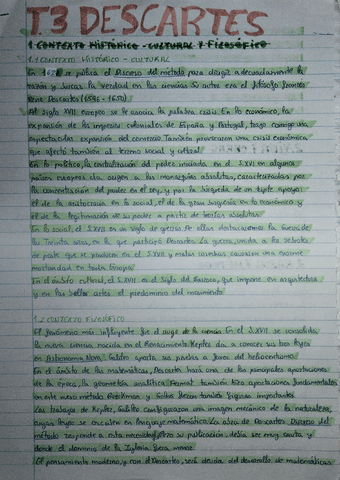 T3 DESCARTES
1 CONTEXTO HISTÓRICO - CULTURAL Y FILOSÓFICO
1.1 CONTEXTO HISTÓRICO - CULTURAL
En 1637 se publica el Discurso del método para dirigir adecuadamente la
razón y buscar la verdad en las ciencias. Su autor era el filósofo francés
René Descartes (1596 - 1650).
Al siglo XVII europeo se le asocia la palabra crisis. En lo económico, la
expansión de los imperios coloniales de España y Portugal, trajo consigo una
espectacular expansión del comercio. También provocaron una crisis económica
que afectó también al terreno social y cultural.
En lo político, la centralización del poder iniciada en el S.XVI en algunos
países europeos dio origen a las monarquías absolutas, caracterizadas por
la concentración del poder en el rey, y por la búsqueda de un triple apoyo:
el de la aristocracia en lo social, el de la gran burguesía en lo económico y
el de la legitimación de su poder a partir de teorías absolutas.
En lo social, el S.XVII es un siglo de guerras. De ellas destacaremos la Guerra de
los Treinta años, en la que participó Descartes. La guerra, unida a las
de peste que se producen en el S.XVII y malas cosechas causaron una enorme
mortandad en toda Europa.
En el ámbito cultural, el S.XVII es el Siglo del Barroco, que impone en arquitectura
y en las bellas artes el predominio del movimiento.
1.2 CONTEXTO FILOSÓFICO
El fenómeno más influyente fue el auge de la ciencia. En el S.XVII se consolida
la nueva ciencia nacida en el Renacimiento. Kepler da a conocer sus tres leyes
en Astronomía Nova. Galileo aporta sus pruebas a favor del heliocentrismo.
En el ámbito de las matemáticas, Descartes hará una de las principales aportaciones
de la época, la geometría analítica. Fermat también hizo aportaciones fundamentales
en este nuevo método. Beeckman y fueron también figuras importantes.
Los trabajos de Kepler, Galileo configuraron una imagen mecánica de la naturaleza,
cuyas leyes se escriben en lenguaje matemático. La obra de Descartes Discurso del
método responde a esta necesidad. Pero su publicación, debía ser muy cauta y
donde el dominio de la Iglesia fuera menor.
El pensamiento moderno, y con él Descartes, será deudor del desarrollo de matemáticas